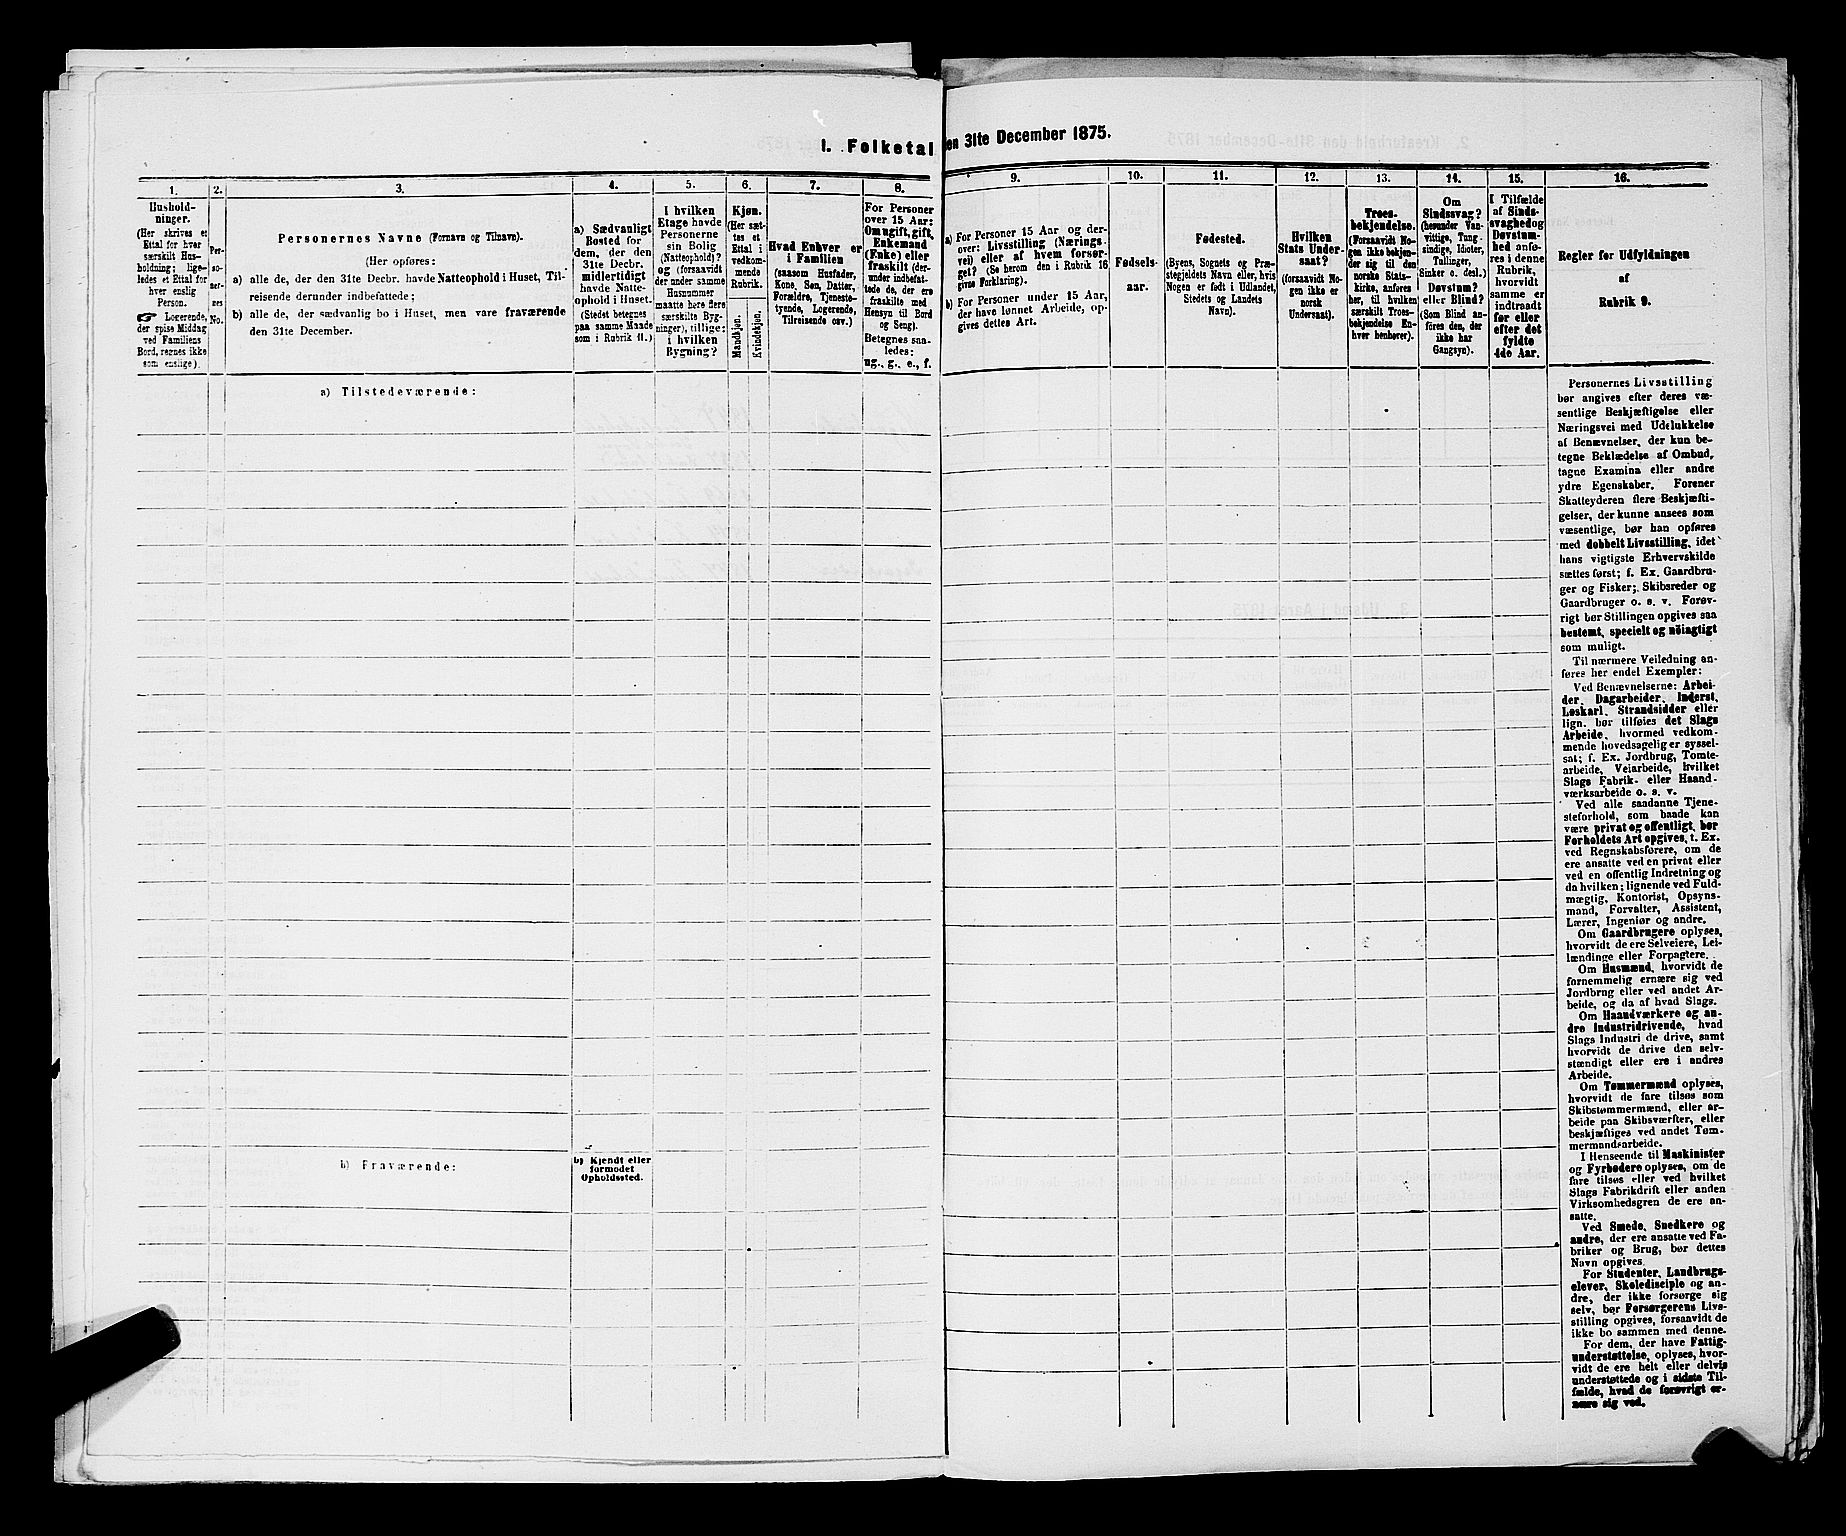 I. Folketal
en 31te December 1875.
1.
Hushold-
ninger.
(Her skrives et
Ettal for hver
særskilt Hus-
holdning; lige-
ledes et Ettal for
hver enslig
Person.
☞ Logerende,
der spise Middag
ved Familiens
Bord, regnes ikke
som enslige).
2.
Per-
so-
ner-
nes
No.
3.
Personernes Navne (Fornavn og Tilnavn).
(Her opføres:
a) alle de, der den 31te Decbr. havde Natteophold i Huset, Til-
reisende derunder indbefattede;
b) alle de, der sædvanlig bo i Huset, men vare fraværende
den 31te December.
4.
a) Sædvanligt
Bosted for
dem, der den
31te Decbr.
midlertidigt
havde Natte-
ophold i Huset.
(Stedet betegnes
paa samme Maade
som i Rubrik 11.)
5.
I hvilken
Etage havde
Personerne
sin Bolig
(Natteophold)?
og (forsaavidt
der under samme
Husnummer
maatte høre flere
særskilte Byg-
ninger), tillige:
i hvilken
Bygning?
6.
Kjøn.
(Her sæt-
tes et
Ettal i
vedkom-
mende
Rubrik.
Mandkjøn.
Kvindekjøn.
7.
Hvad Enhver er
i Familien
(saasom Husfader,
Kone, Søn, Datter,
Forældre, Tjeneste-
tyende, Logerende,
Tilreisende osv.)
8.
For Personer
over 15 Aar:
Om ugift, gift,
Enkemand
(Enke) eller
fraskilt (der-
under indbefat-
tede de, der ere
fraskilte med
Hensyn til Bord
og Seng).
Betegnes saa-
ledes:
ug., g., e., f.
9.
a) For Personer 15 Aar og der-
over: Livsstilling (Nærings-
vei) eller af hvem forsør-
get? (Se herom den i Rubrik 16
givne Forklaring).
b) For Personer under 15 Aar,
der have lønnet Arbeide, op-
gives dettes Art.
10.
Fødsels-
aar.
11.
Fødested.
(Byens, Sognets og Præ-
stegjeldets Navn eller, hvis
Nogen er født i Udlandet,
Stedets og Landets
Navn).
12.
Hvilken
Stats Under-
saat?
(forsaavidt No-
gen ikke er
norsk
Undersaat).
13.
Troes-
bekjendelse.
(Forsaavidt No-
gen ikke bekjen-
der sig til den
norske Stats-
kirke, anføres
her, til hvilken
særskilt Troes-
bekjendelse En-
hver henhører).
14.
Om
Sindssvag?
(herunder Van-
vittige, Tung-
sindige, Idioter,
Tullinger,
Sinker o. desl.)
Døvstum?
eller Blind?
(Som Blind an-
føres den, der
ikke har
Gangsyn).
15.
I Tilfælde
af Sinds-
svaghed og
Døvstum-
hed anfø-
res i denne
Rubrik,
hvorvidt
samme er
indtraadt
før eller
efter det
fyldte
4de Aar.
16.
Regler for Udfyldningen
af
Rubrik 9.
a) Tilstedeværende:
b) Fraværende:
b) Kjendt eller
formodet
Opholdssted.
Personernes Livsstilling
bør angives efter deres væ-
sentlige Beskjæftigelse eller
Næringsvei med Udelukkelse
af Benævnelser, der kun be-
tegne Beklædelse af Ombud,
tagne Examina eller andre
ydre Egenskaber. Forener
Skatteyderen flere Beskjæfti-
gelser, der kunne ansees som
væsentlige, bør han opføres
med dobbelt Livsstilling, idet
hans vigtigste Erhvervskilde
sættes først; f. Ex. Gaardbru-
ger og Fisker; Skibsreder og
Gaardbruger o. s. v. Forøv-
rigt bør Stillingen opgives saa
bestemt, specielt og nøiagtigt
som muligt.
Til nærmere Veiledning an-
føres her endel Exempler:
Ved Benævnelserne: Arbei-
der, Dagarbeider, Inderst,
Løskarl, Strandsidder eller
lign. bør tilføies det Slags
Arbeide, hvormed vedkom-
mende hovedsagelig er syssel-
sat; f. Ex. Jordbrug, Tomte-
arbeide, Veiarbeide, hvilket
Slags Fabrik- eller Haand-
værksarbeide o. s. v.
Ved alle saadanne Tjene-
steforhold, som baade kan
være privat og offentligt, bør
Forholdets Art opgives, t. Ex.
ved Regnskabsførere, om de
ere ansatte ved en privat eller
ved en offentlig Indretning og
da hvilken; lignende ved Fuld-
mægtig, Kontorist, Opsyns-
mand, Forvalter, Assistent,
Lærer, Ingeniør og andre.
Om Gaardbrugere oplyses,
hvorvidt de ere Selveiere, Lei-
lændinge eller Forpagtere.
Om Husmænd, hvorvidt de
fornemmelig ernære sig ved
Jordbrug eller ved andet Ar-
beide, og da af hvad Slags.
Om Haandværkere og an-
dre Industridrivende, hvad
Slags Industri de drive, samt
hvorvidt de drive den selv-
stændigt eller ere i andres
Arbeide.
Om Tømmermænd oplyses,
hvorvidt de fare tilsøs som
Skibstømmermænd, eller ar-
beide paa Skibsværfter, eller
beskjæftiges ved andet Tøm-
mermandsarbeide.
I Henseende til Maskinister
og Fyrbødere oplyses, om de
fare tilsøs eller ved hvilket
Slags Fabrikdrift eller anden
Virksomhedsgren de ere an-
satte.
Ved Smede, Snedkere og
andre, der ere ansatte ved Fa-
briker og Brug, bør dettes
Navn opgives.
For Studenter, Landbrugs-
elever, Skoledisciple og an-
dre, der ikke forsørge sig
selv, bør Forsørgerens Livs-
stilling opgives, forsaavidt de
ikke bo sammen med denne.
For dem, der have Fattig-
understøttelse, oplyses, hvor-
vidt de ere helt eller delvis
understøttede og i sidste Til-
fælde, hvad de forøvrigt er-
nære sig ved.